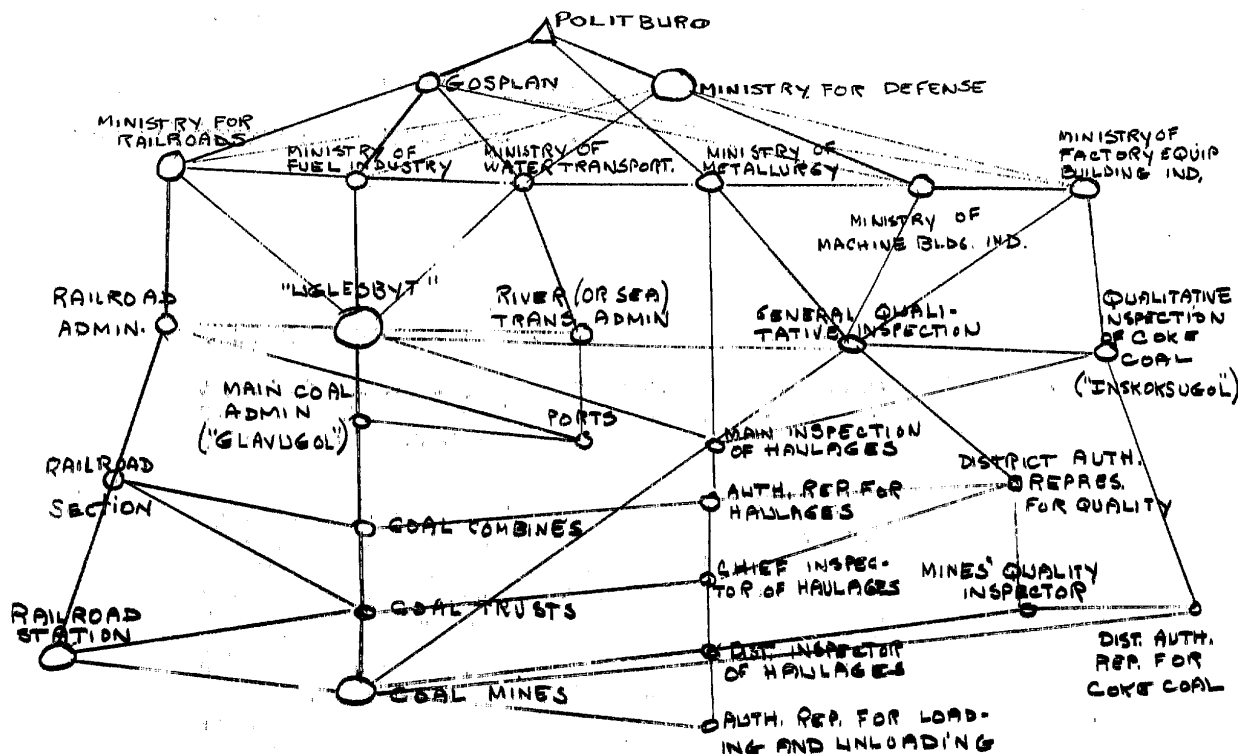 POLITBURO
GOSPLAN
MINISTRY FOR DEFENSE
MINISTRY FOR
RAILROADS
MINISTRY OF
FUEL INDUSTRY
MINISTRY OF
WATER TRANSPORT.
MINISTRY OF
METALLURGY
MINISTRY OF
FACTORY EQUIP
BUILDING IND.
MINISTRY OF
MACHINE BLDG. IND.
RAILROAD
ADMIN.
"UGLESBYT"
RIVER (OR SEA)
TRANS. ADMIN
GENERAL QUALI-
TATIVE INSPECTION
QUALITATIVE
INSPECTION
OF COKE
COAL
("INSKOKSUGOL")
MAIN COAL
ADMIN
("GLAVUGOL")
PORTS
MAIN INSPECTION
OF HAULAGES
RAILROAD
SECTION
COAL COMBINES
AUTH. REP. FOR
HAULAGES
DISTRICT AUTH.
REPRES.
FOR QUALITY
COAL TRUSTS
CHIEF INSPEC-
TOR OF HAULAGES
MINES' QUALITY
INSPECTOR
RAILROAD
STATION
COAL MINES
DIST. INSPECTOR
OF HAULAGES
DIST. AUTH.
REP. FOR
COKE COAL
AUTH. REP. FOR LOAD-
ING AND UNLOADING